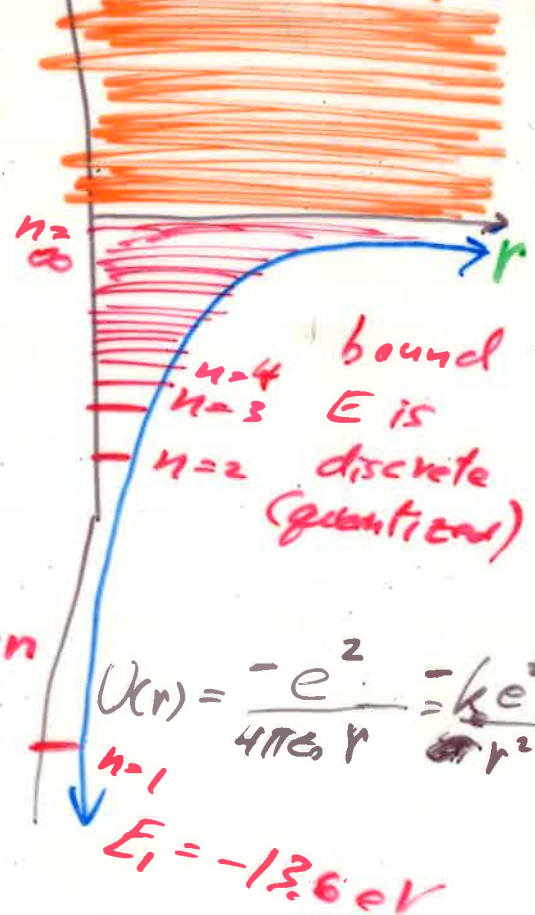 n=
∞
r
bound
n=4
n=3 E is
n=2 discrete
(quantized)
n
U(r) = -e² / 4πε₀ r = -ke² / r²
n=1
E₁ = -13.6 eV